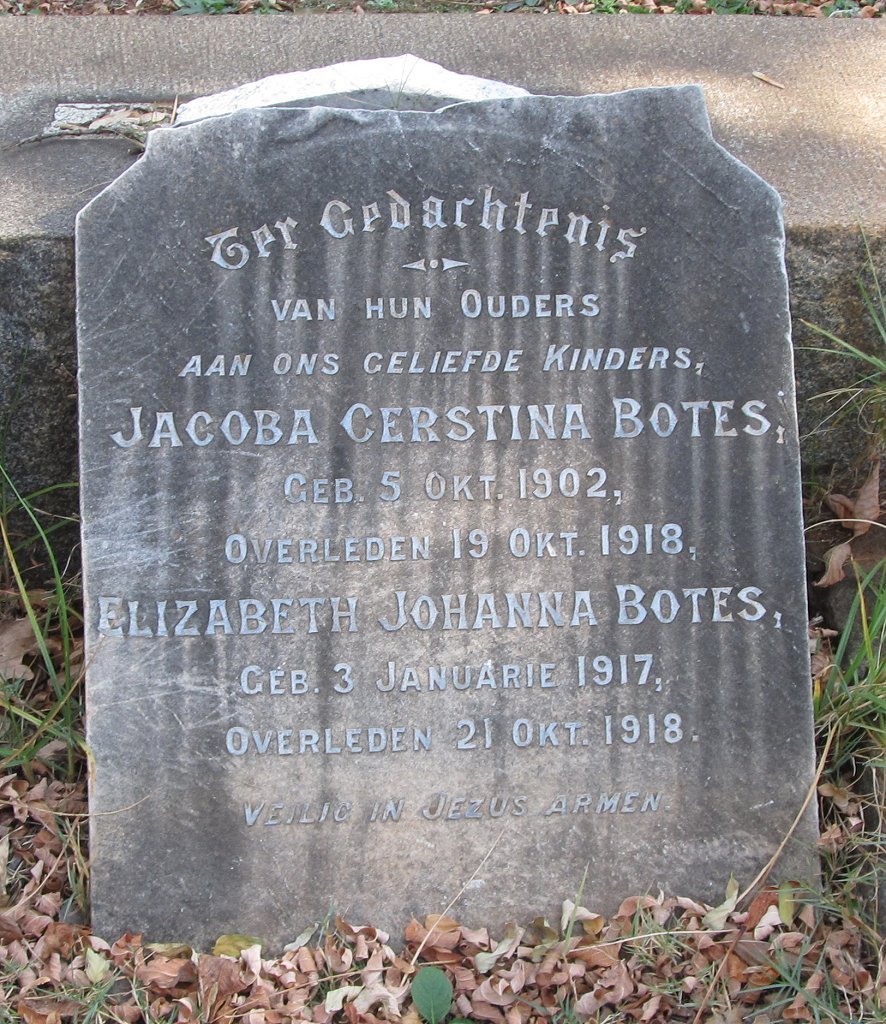 Ter Gedachtenis
VAN HUN OUDERS
AAN ONS GELIEFDE KINDERS,
JACOBA CERSTINA BOTES;
GEB. 5 OKT. 1902,
OVERLEDEN 19 OKT. 1918,
ELIZABETH JOHANNA BOTES,
GEB. 3 JANUARIE 1917,
OVERLEDEN 21 OKT. 1918.
VEILIG IN JEZUS ARMEN.